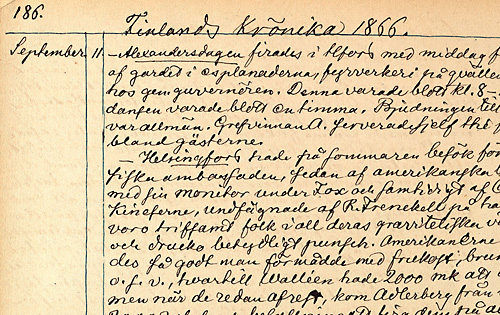 186.
Finlands Krönika 1866.
September 11. – Alexandersdagen firades i Hfors med middag f
af gardet i esplanaderna, fyrverkeri på qvällen
hos gen. guvernören. Denna varade blott kl. 8–
dansen varade blott en timma. Bjudningen til
var allmän. Grefvinnan A. serverade sjelf thé
bland gästerne.
– Helsingfors hade på sommaren besök
ambassaden, sedan af amerikanska
med sin monitor under Fox och samtidigt af
Kineserne, undfägnade af R. Frenckell på
voro triffamt folk i all deras gravitetiska
och drucko betydligt punsch. Amerikanerne
des så godt man förmådde med frukost, brun
o. s. v., hvartill Walléen hade 2000 mk att
men när de redan afrest, kom Adlerberg från